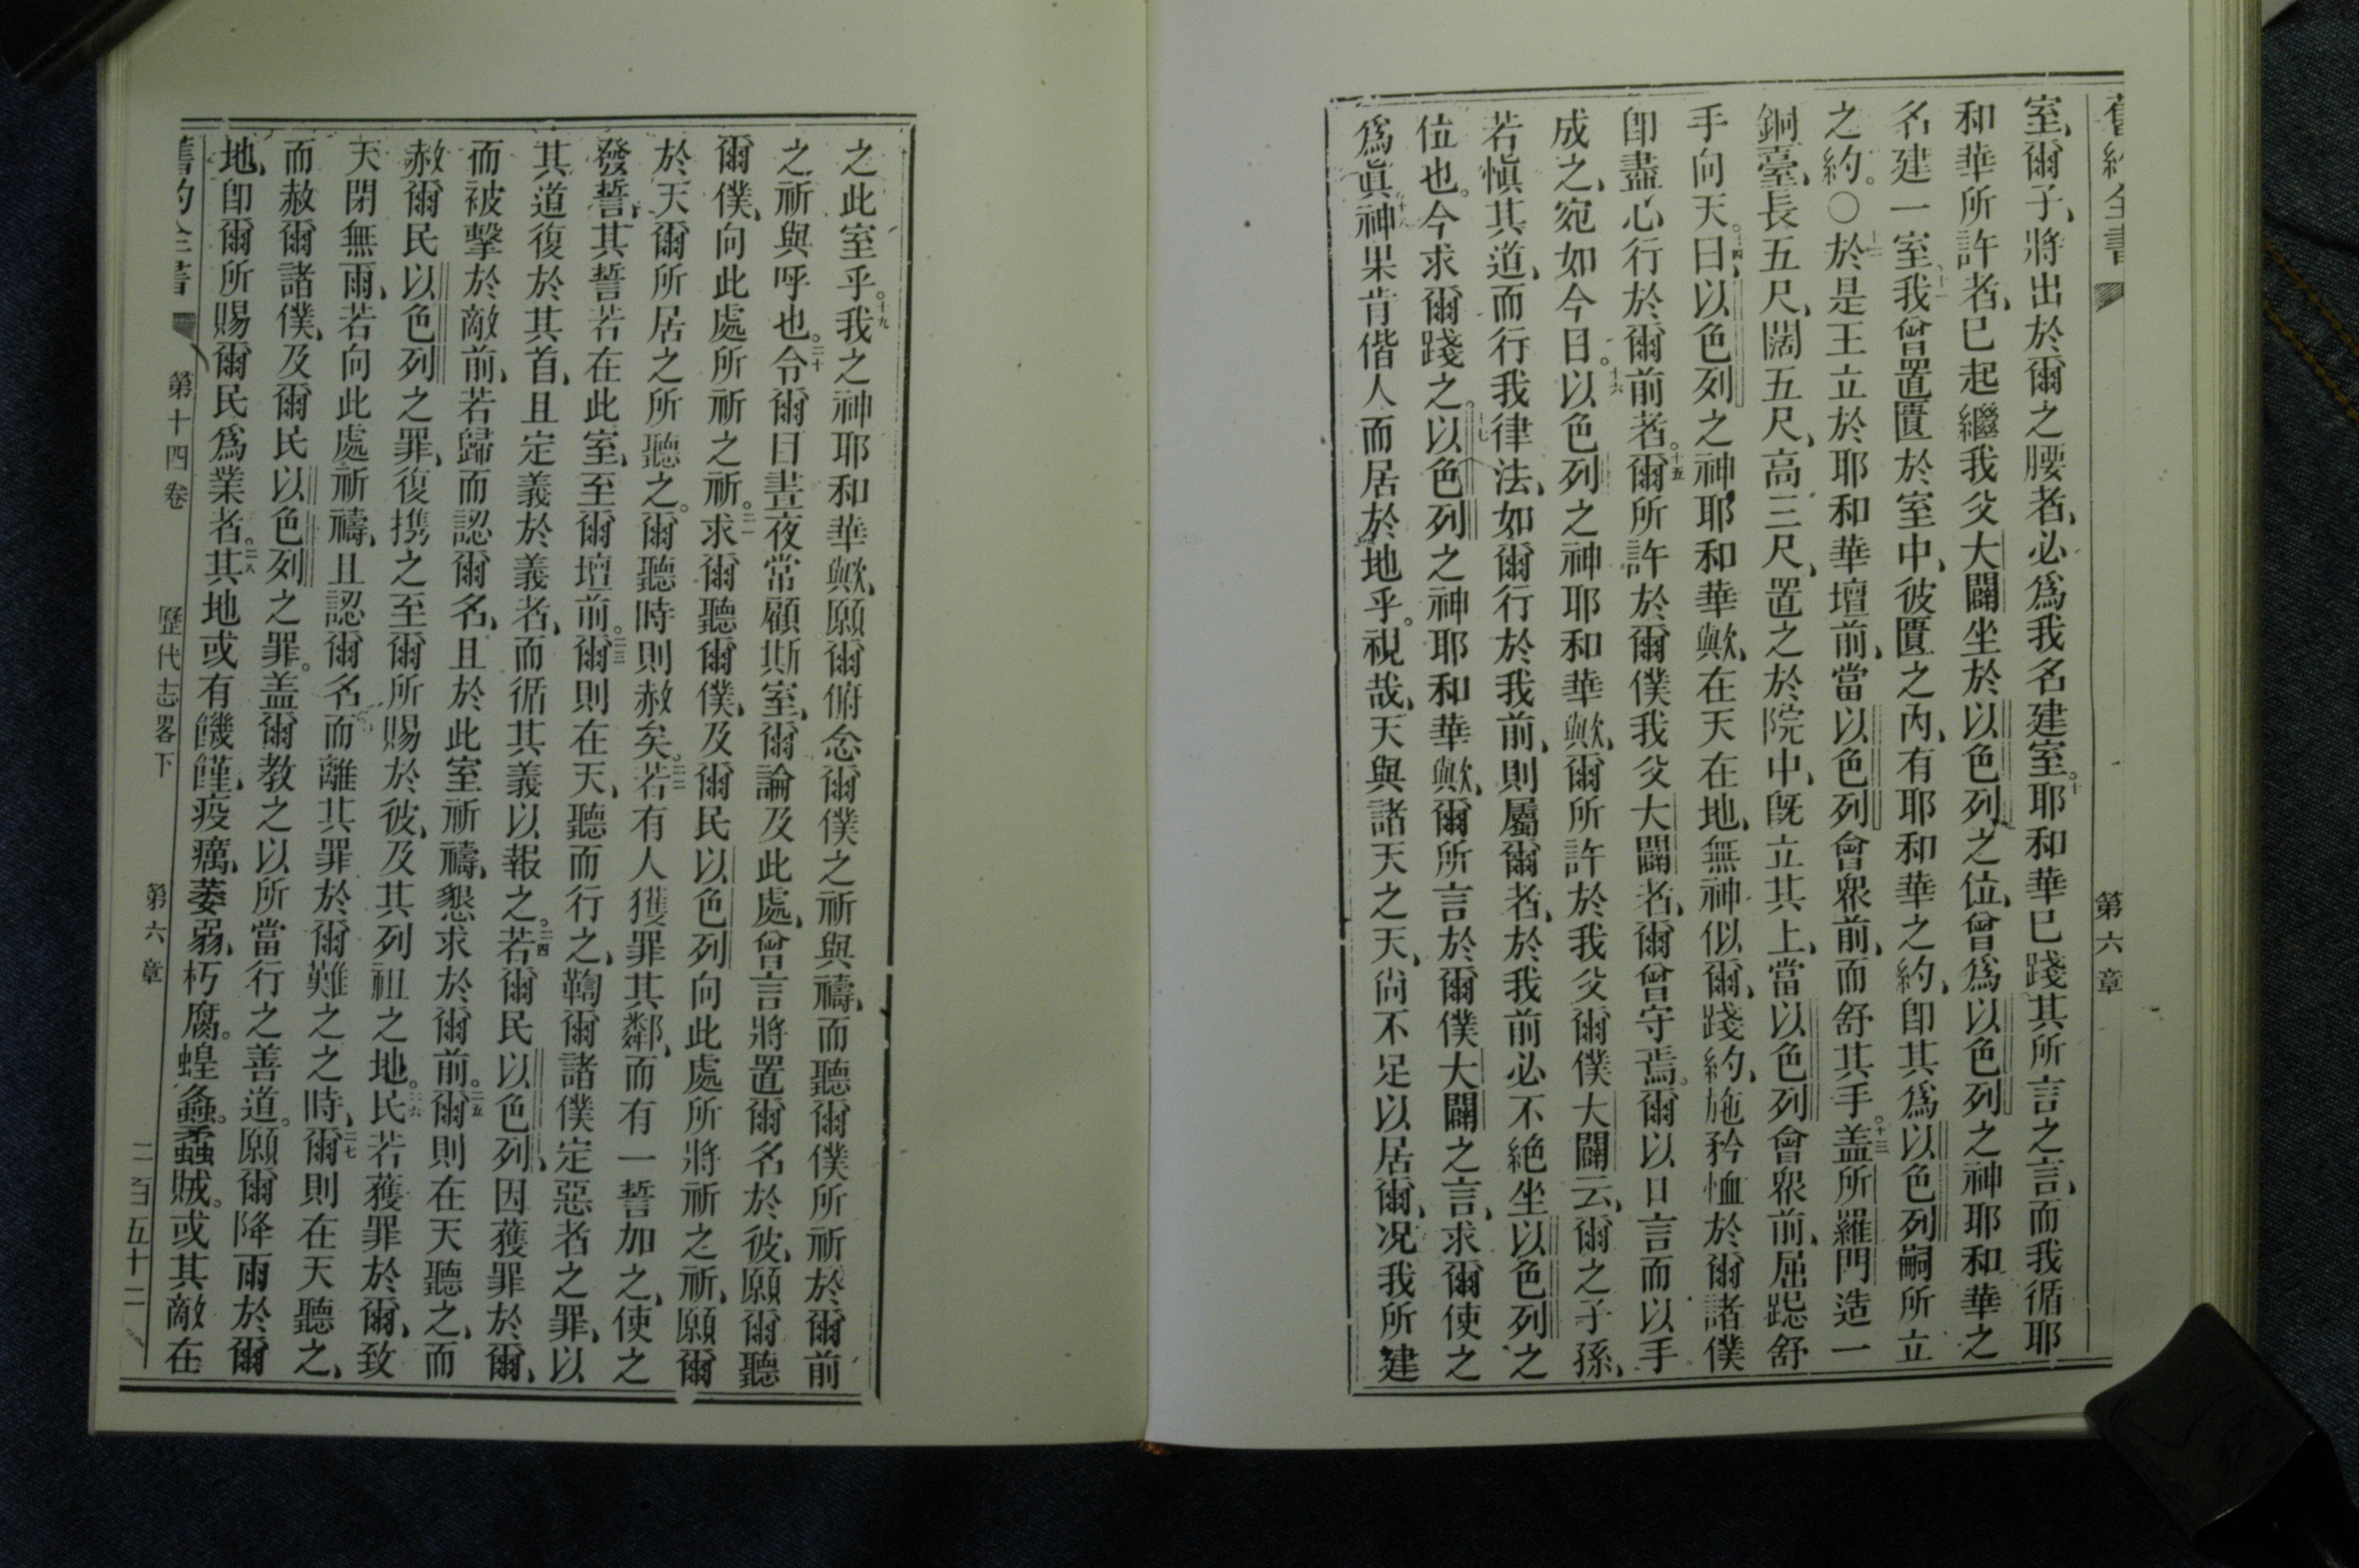 舊約全書 第六章
室、爾子、將出於爾之腰者、必爲我名建室。十耶和華已踐其所言之言、而我循耶
和華所許者、已起繼我父大闢坐於以色列之位、曾爲以色列之神耶和華之
名建一室、十一我曾置匱於室中、彼匱之內、有耶和華之約、卽其爲以色列嗣所立
之約。○十二於是王立於耶和華壇前、當以色列會眾前、而舒其手。十三盖所羅門造一
銅臺、長五尺、闊五尺、高三尺、置之於院中、旣立其上、當以色列會眾前、屈跽舒
手向天。十四曰、以色列之神耶和華歟、在天在地、無神似爾、踐約、施矜恤於爾諸僕
卽盡心行於爾前者。十五爾所許於爾僕我父大闢者、爾曾守焉。爾以口言而以手
成之、宛如今日。十六以色列之神耶和華歟、爾所許於我父爾僕大闢云、爾之子孫、
若愼其道、而行我律法、如爾行於我前、則屬爾者、於我前必不絕坐以色列之
位也。今求爾踐之。十七以色列之神耶和華歟、爾所言於爾僕大闢之言、求爾使之
爲眞。十八神果肯偕人而居於地乎。視哉、天與諸天之天、尙不足以居爾、况我所建
之此室乎。十九我之神耶和華歟、願爾俯念爾僕之祈與禱、而聽爾僕所祈於爾前
之祈與呼也。二十令爾目晝夜常顧斯室、爾論及此處、曾言將置爾名於彼、願爾聽
爾僕、向此處所祈之祈。二一求爾聽爾僕、及爾民以色列向此處所將祈之祈、願爾
於天爾所居之所聽之。爾聽時則赦矣。二二若有人獲罪其鄰、而有一誓加之、使之
發誓、其誓若在此室、至爾壇前。二三爾則在天、聽而行之、鞫爾諸僕定惡者之罪、以
其道復於其首、且定義於義者、而循其義以報之。二四若爾民以色列、因獲罪於爾、
而被擊於敵前、若歸而認爾名、且於此室祈禱、懇求於爾前。二五爾則在天聽之、而
赦爾民以色列之罪、復携之至爾所賜於彼、及其列祖之地。二六民若獲罪於爾、致
天閉無雨、若向此處祈禱、且認爾名、而離其罪於爾難之之時、二七爾則在天聽之、
而赦爾諸僕、及爾民以色列之罪。盖爾教之以所當行之善道。願爾降雨於爾
地、卽爾所賜爾民爲業者。二八其地或有饑饉、疫癘、萎弱、朽腐。蝗螽。蟊賊。或其敵在
舊約全書 第十四卷 歷代志畧下 第六章 二百五十二